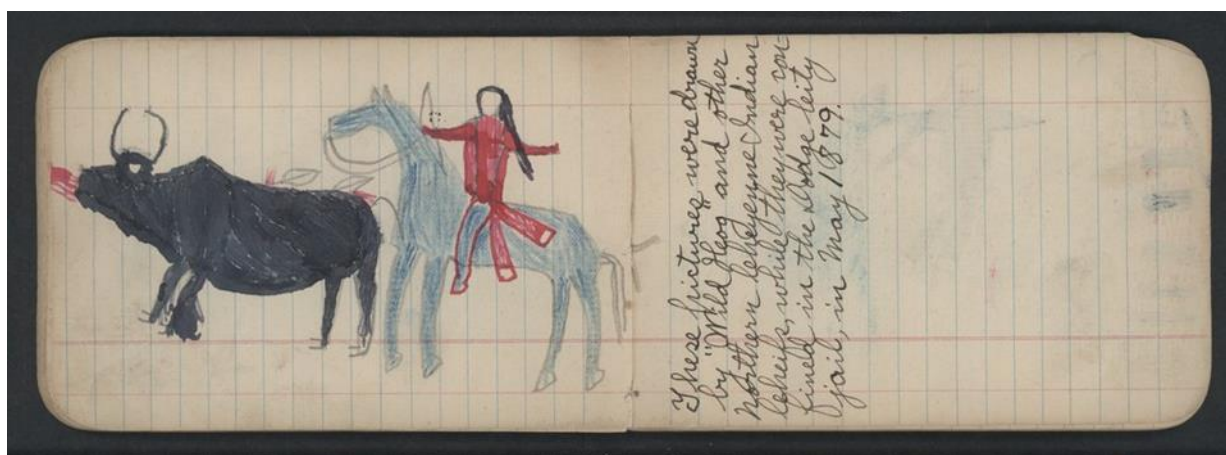 These pictures were drawn
by "Wild Hog and other
Northern Cheyenne Indian
Cheifs, while they were con-
fined in the Dodge City
jail, in May 1879.